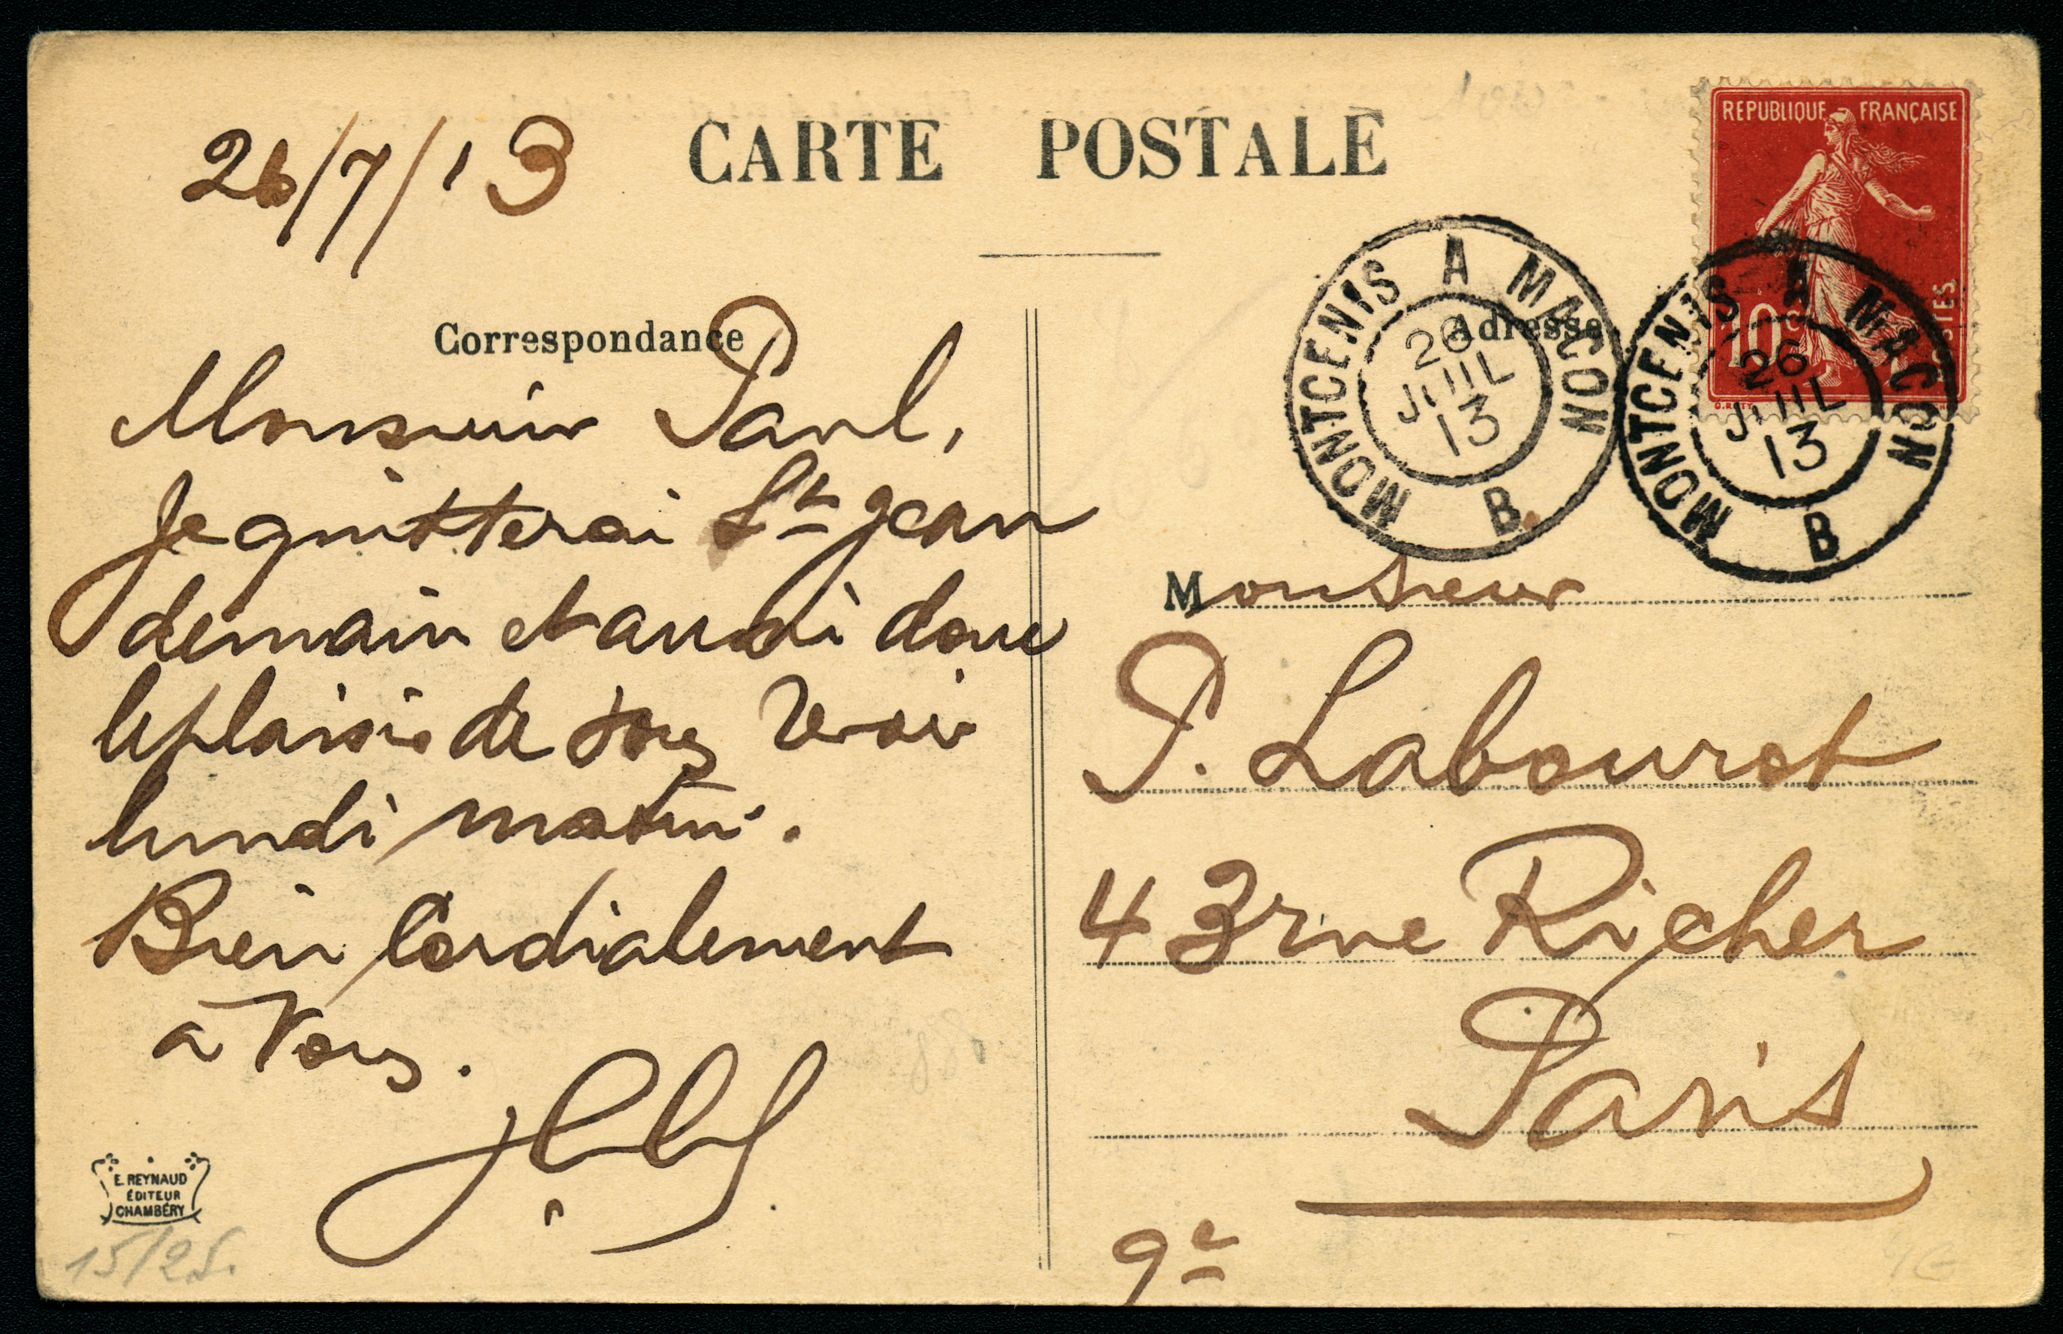 26/7/13
CARTE POSTALE
REPUBLIQUE FRANÇAISE
10c
POSTES
MONTCENIS A MACON
26
JUIL
13
B
MONTCENIS A MACON
26
JUIL
13
B
Correspondance
Adresse
Monsieur Paul,
Je quitterai St Jean
demain et aurai donc
le plaisir de vous revoir
lundi matin.
Bien Cordialement
a Vous.
E. REYNAUD
ÉDITEUR
CHAMBÉRY
15/25.
Monsieur
P. Labourot
43 rue Richer
Paris
9e